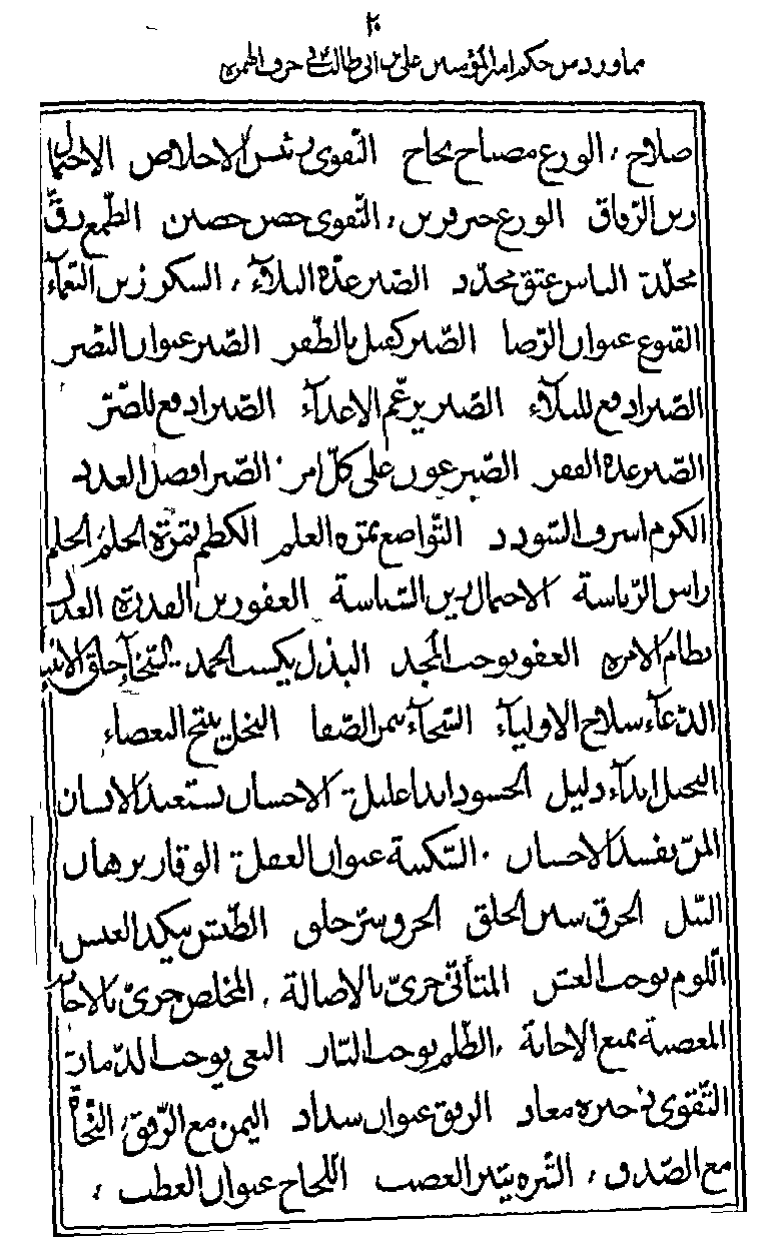 ٢٠
مما ورد من حكم امير المؤمنين علي بن ابي طالب في حرف الهمزة
صلاح، الورع مصباح نجاح التّقوى رئيس الاخلاص الاحتمال
زين الرّفاق الورع خير قرين، التّقوى حصن حصين الطّمع رقّ
مخلّد الياس عتق مجدّد الصّبر عدّة البلاء، الشكر زين النّعماء
القنوع عنوان الرّضا الصّبر كفيل بالظّفر الصّبر عنوان النّصر
الصّبر ادفع للبلاء الصّبر يرغّم الاعدآء الصّبر ادفع للضّرّ
الصّبر عدة الفقر الصّبر عون على كلّ امر الصّبر افضل العدد
الكرم اشرف السّودد التّواضع ثمرة العلم الكظم ثمرة الحلم الحلم
راس الرّياسة الاحتمال زين السّياسة العفو زين القدرة العدل
نظام الامرة العفو يوجب المجد البذل يكسب الحمد السّخآء خلق الانبيا
الدّعآء سلاح الاوليآء السّخآء يثمر الصّفا البخل ينتج البغضاء
البخيل ابدآء ذليل الحسود ابدا عليل الاحسان يستعبد الانسان
المنّ يفسد الاحسان السّكينة عنوان العقل الوقار برهان
النّبل الخرق شين الخلق الخرق شرّ خلق الطّيش ينكد العيش
اللّوم يوجب الغشّ المتأنّي حريّ بالاصابة المخلص حريّ بالاجابة
المعصية تمنع الاجابة الظّلم يوجب النّار البغي يوجب الدّمار
التّقوى ذخيرة معاد الرفق عنوان سداد اليمن مع الرّفق، النّجاة
مع الصّدق، الشّره يثير الغضب اللّجاج عنوان العطب،